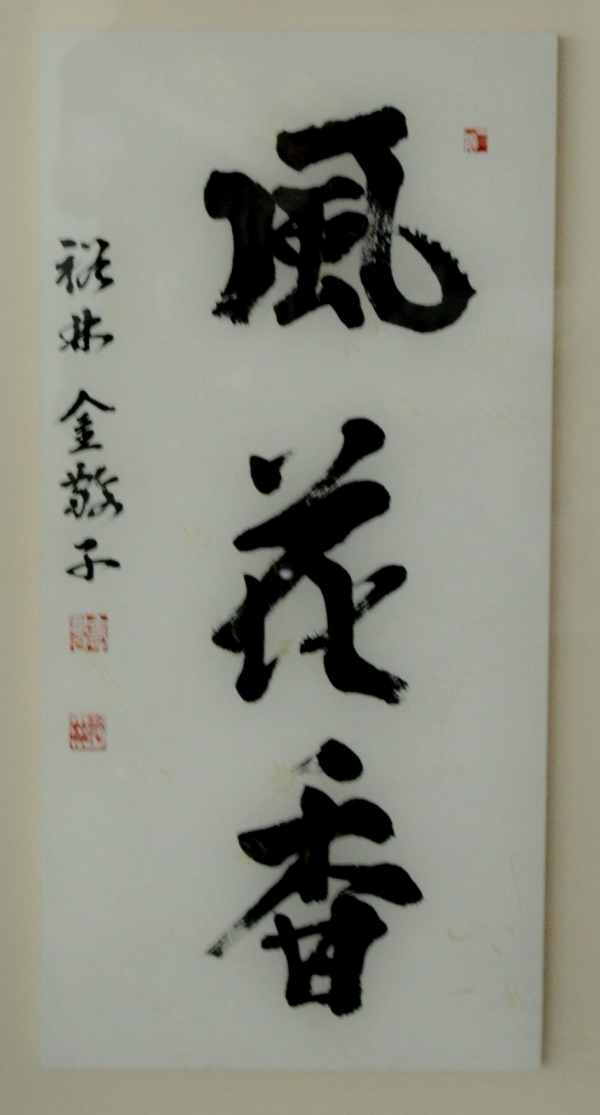 風花香
裕林 金敬子